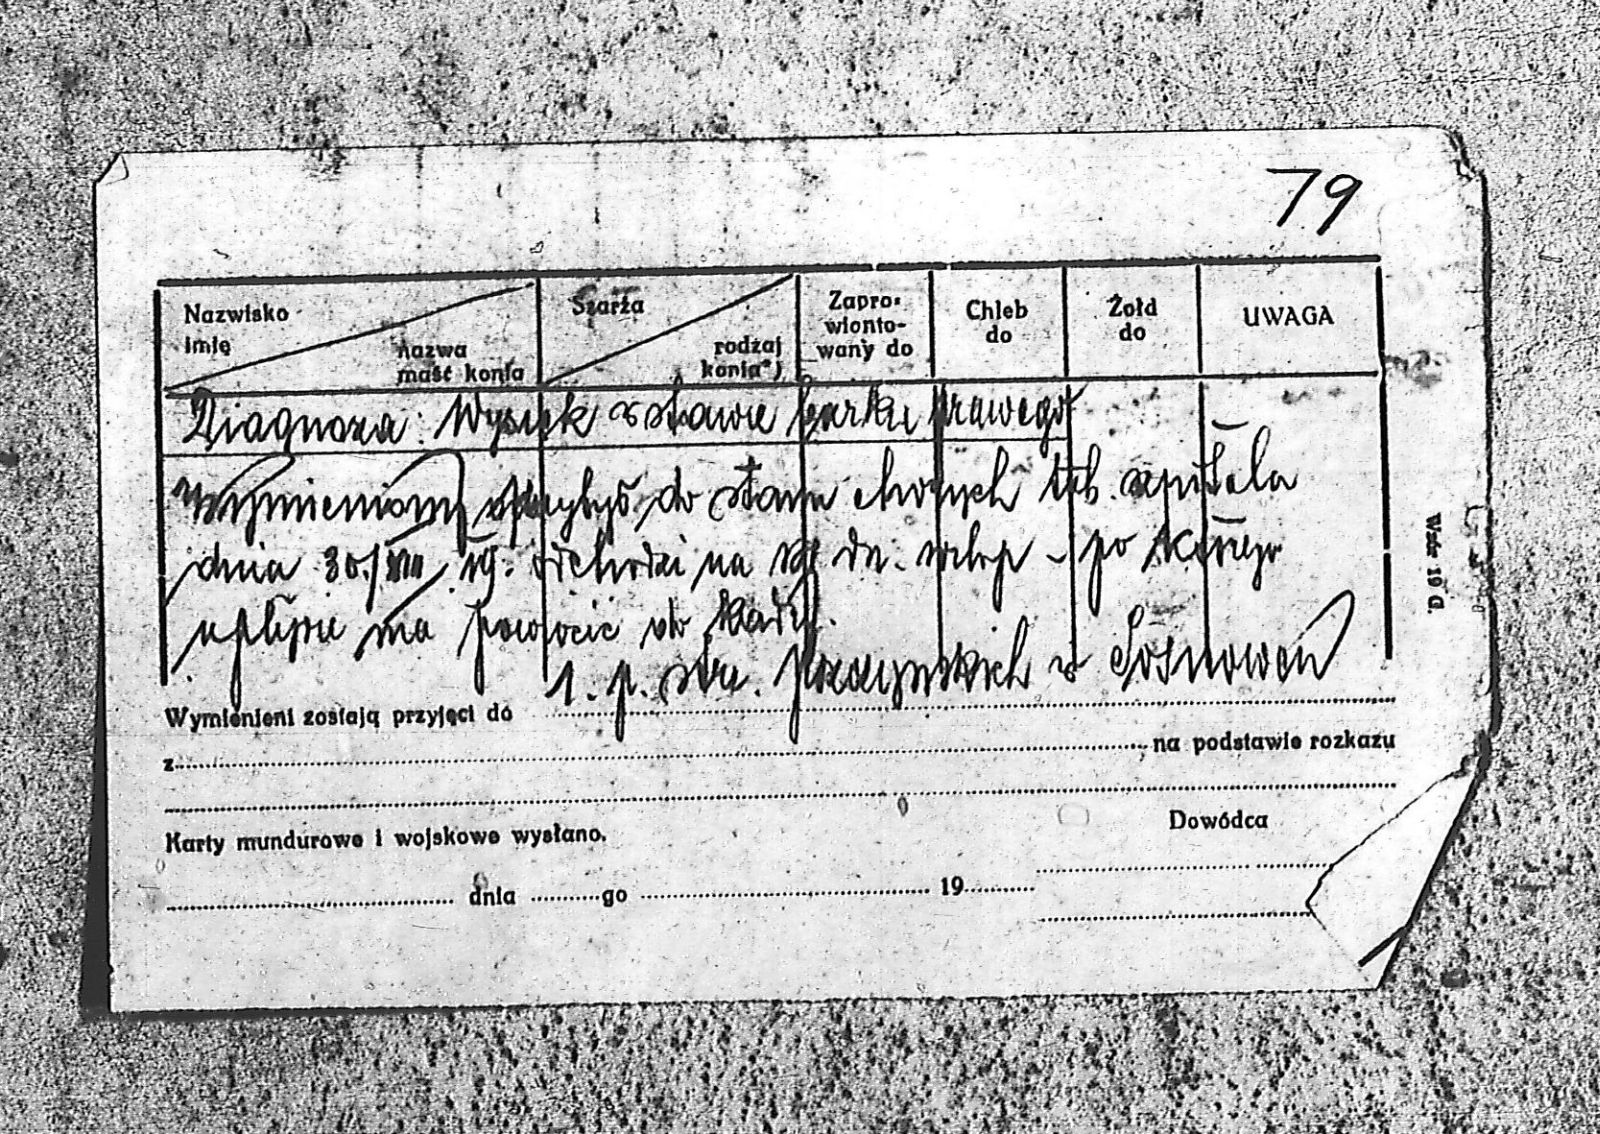 79
Nazwisko
imię
nazwa
maść konia
Szarża
rodzaj
konia*)
Zapro-
wianto-
wany do
Chleb
do
Żołd
do
UWAGA
Diagnoza: Wysięk w stawie barku prawego
Wymieniony przybył do stanu chorych tut. szpitala
dnia 30./VIII. odchodzi na dn. urlop - po którego
upływie ma powrócić do Kadry.
1. p. str. w Sosnowcu
Wymienieni zostają przyjęci do
z
na podstawie rozkazu
Karty mundurowe i wojskowe wysłano.
Dowódca
dnia go 19
Wzór 19 a.